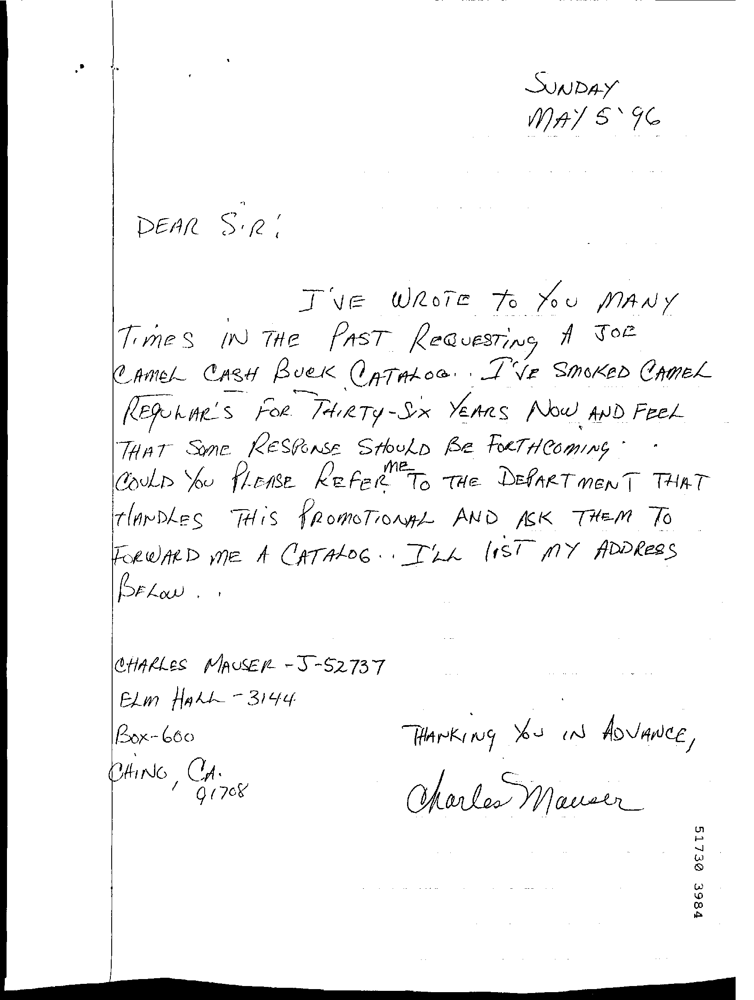 SUNDAY
MAY 5 '96
DEAR SIR:
I'VE WROTE TO YOU MANY
TIMES IN THE PAST REQUESTING A JOE
CAMEL CASH BUCK CATALOG.. I'VE SMOKED CAMEL
REGULAR'S FOR THIRTY-SIX YEARS NOW AND FEEL
THAT SOME RESPONSE SHOULD BE FORTHCOMING..
COULD YOU PLEASE REFER ME TO THE DEPARTMENT THAT
HANDLES THIS PROMOTIONAL AND ASK THEM TO
FORWARD ME A CATALOG.. I'LL LIST MY ADDRESS
BELOW..
CHARLES MAUSER - J-52737
ELM HALL - 3144
BOX-600
CHINO, CA.
91708
THANKING YOU IN ADVANCE,
Charles Mauser
51730 3984